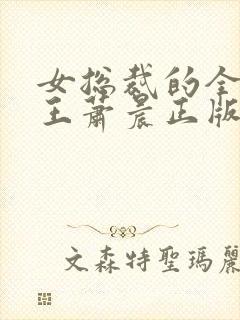 女总裁的全
王萧晨正版
文森特聖瑪麗